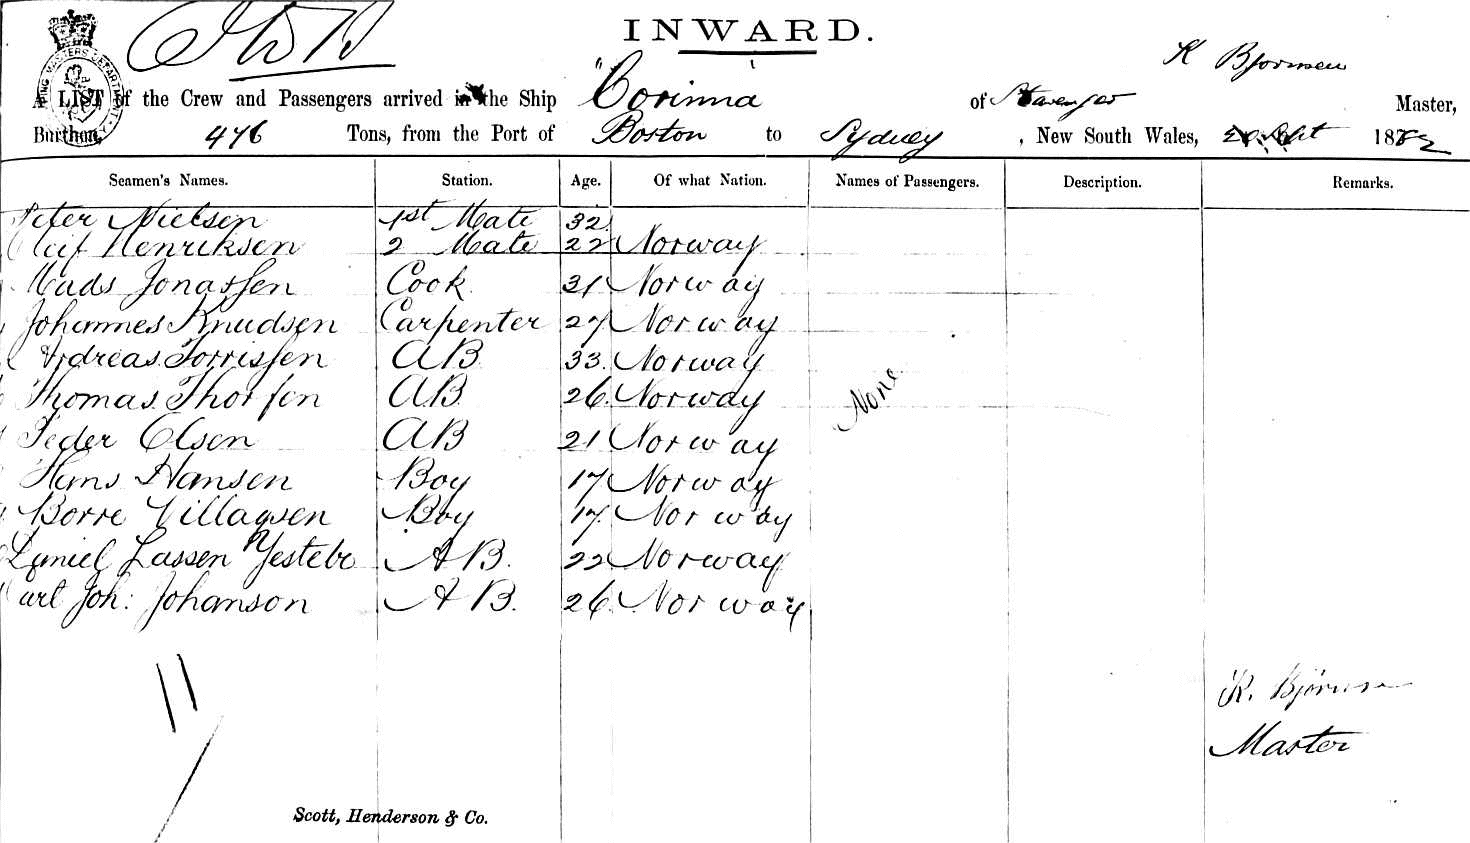 INWARD.
K Bjornsen
A LIST of the Crew and Passengers arrived in the Ship "Corinna" of Stavanger Master,
Burthen, 476 Tons, from the Port of Boston to Sydney, New South Wales, Sept 1882
Seamen's Names. Station. Age. Of what Nation. Names of Passengers. Description. Remarks.
Peter Nielsen 1st Mate 32
Henriksen 2 Mate 22 Norway
Mads Jonassen Cook 31 Norway
Johannes Knudsen Carpenter 27 Norway
Andreas Torrissen AB 33 Norway
Thomas Thorsen AB 26 Norway
None
Peder Olsen AB 21 Norway
Hans Hansen Boy 17 Norway
Borre Villagsen Boy 17 Norway
Daniel Lassen Yestebo AB. 22 Norway
Carl Joh: Johanson AB. 26 Norway
11
K. Bjørnsen
Master
Scott, Henderson & Co.